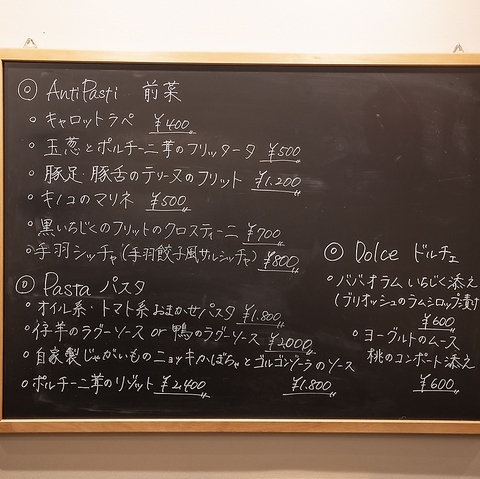 ◎ AntiPasti 前菜
○ キャロットラペ ¥400
○ 玉葱とポルチーニ茸のフリッタータ ¥500
○ 豚足・豚舌のテリーヌのフリット ¥1.200
○ キノコのマリネ ¥500
○ 黒いちじくのフリットのクロスティーニ ¥700
○ 手羽シッチャ(手羽餃子風サルシッチャ) ¥800
◎ Pasta パスタ
○ オイル系・トマト系おまかせパスタ ¥1.800
○ 仔羊のラグーソース or 鴨のラグーソース ¥2000
○ 自家製じゃがいものニョッキかぼちゃとゴルゴンゾーラのソース
¥1.800
○ ポルチーニ茸のリゾット ¥2,400
◎ Dolce ドルチェ
○ ババオラム いちじく添え
(ブリオッシュのラムシロップ漬け
¥600
○ ヨーグルトのムース
桃のコンポート添え
¥600